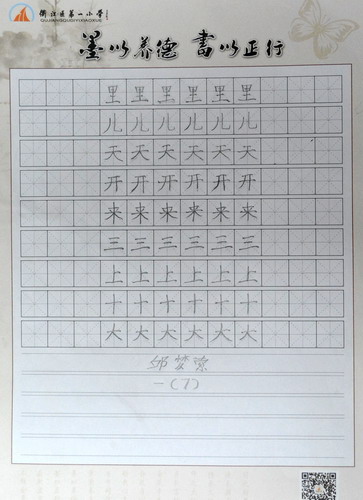 衢江区第一小学
QUJIANGQUDIYIXIAOXUE
墨以养德 书以正行
里里里里里里
儿儿儿儿儿儿
天天天天天天
开开开开开开
来来来来来来
三三三三三三
上上上上上上
十十十十十十
大大大大大大
一(7)